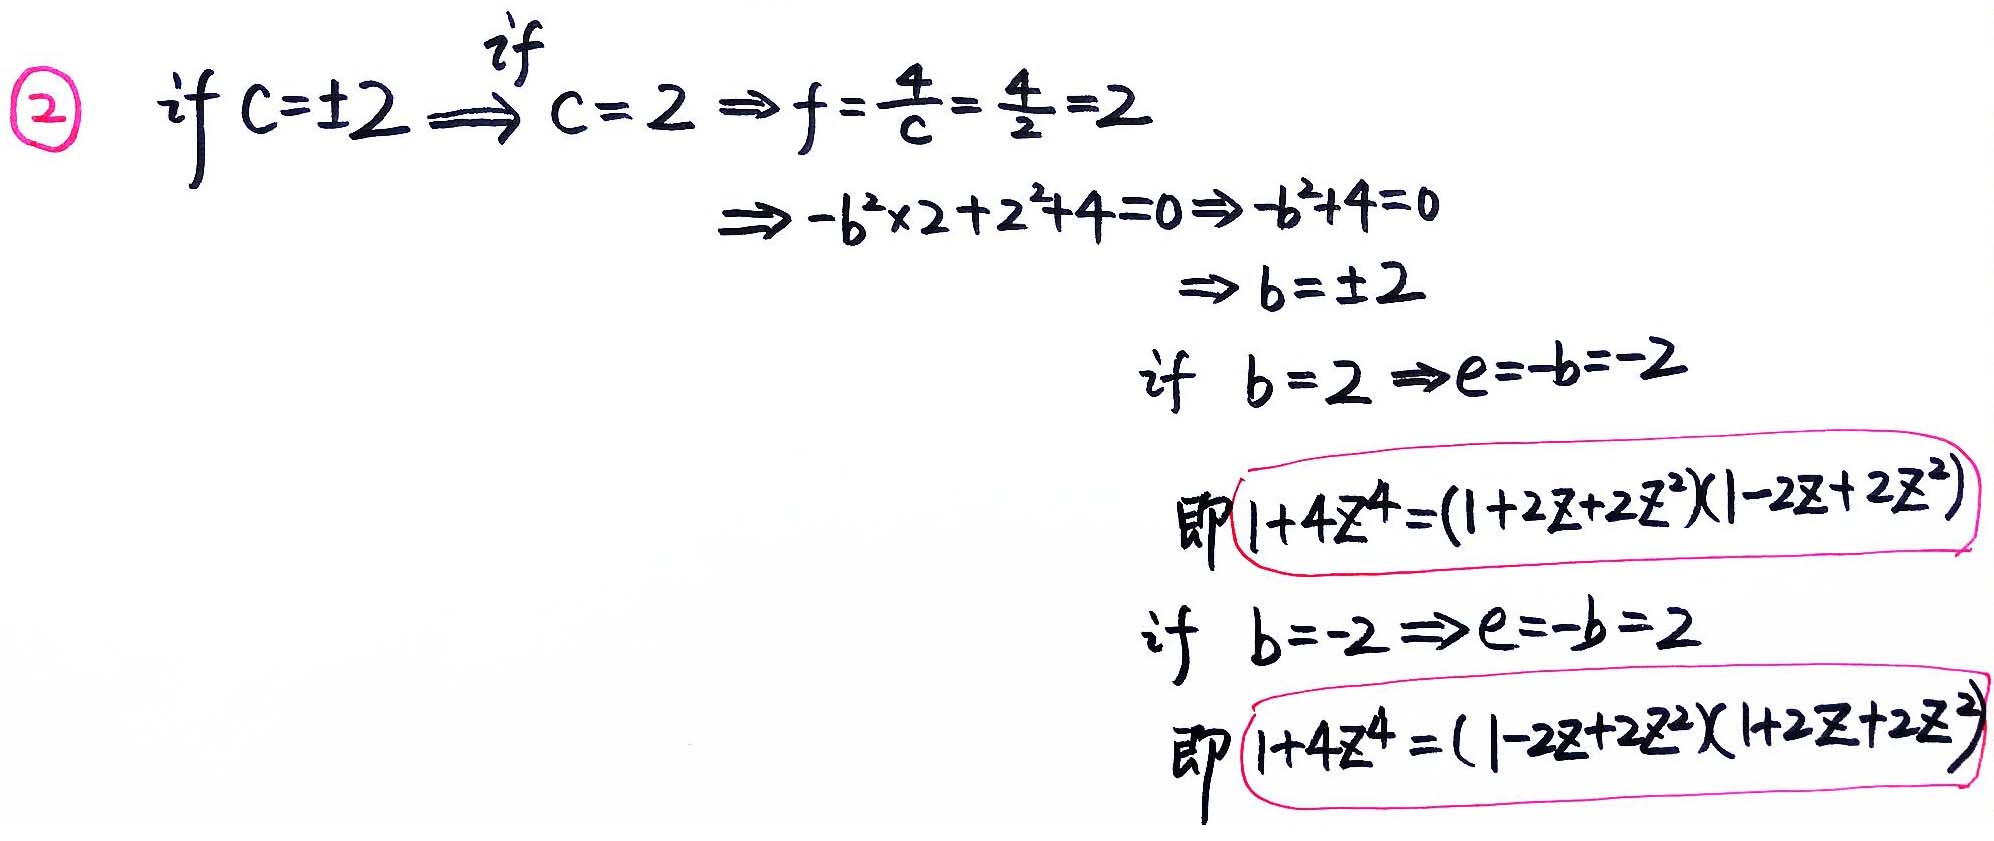 ② if c=±2 ⟹ if c=2 ⇒ f=4/c=4/2=2
⇒ -b²×2+2²+4=0 ⇒ -b²+4=0
⇒ b=±2
if b=2 ⇒ e=-b=-2
即 1+4z⁴=(1+2z+2z²)(1-2z+2z²)
if b=-2 ⇒ e=-b=2
即 1+4z⁴=(1-2z+2z²)(1+2z+2z²)